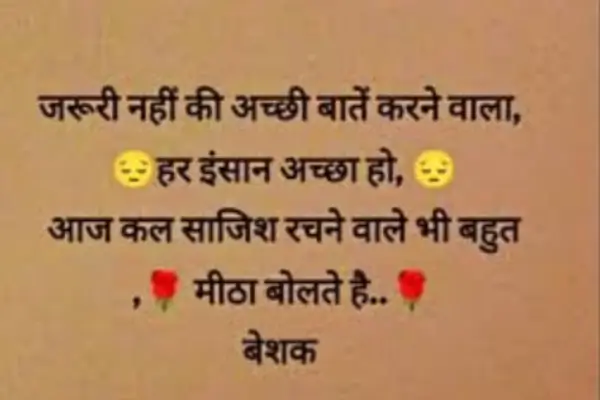 जरूरी नहीं की अच्छी बातें करने वाला,
😔हर इंसान अच्छा हो, 😔
आज कल साजिश रचने वाले भी बहुत
,🌹 मीठा बोलते है..🌹
बेशक